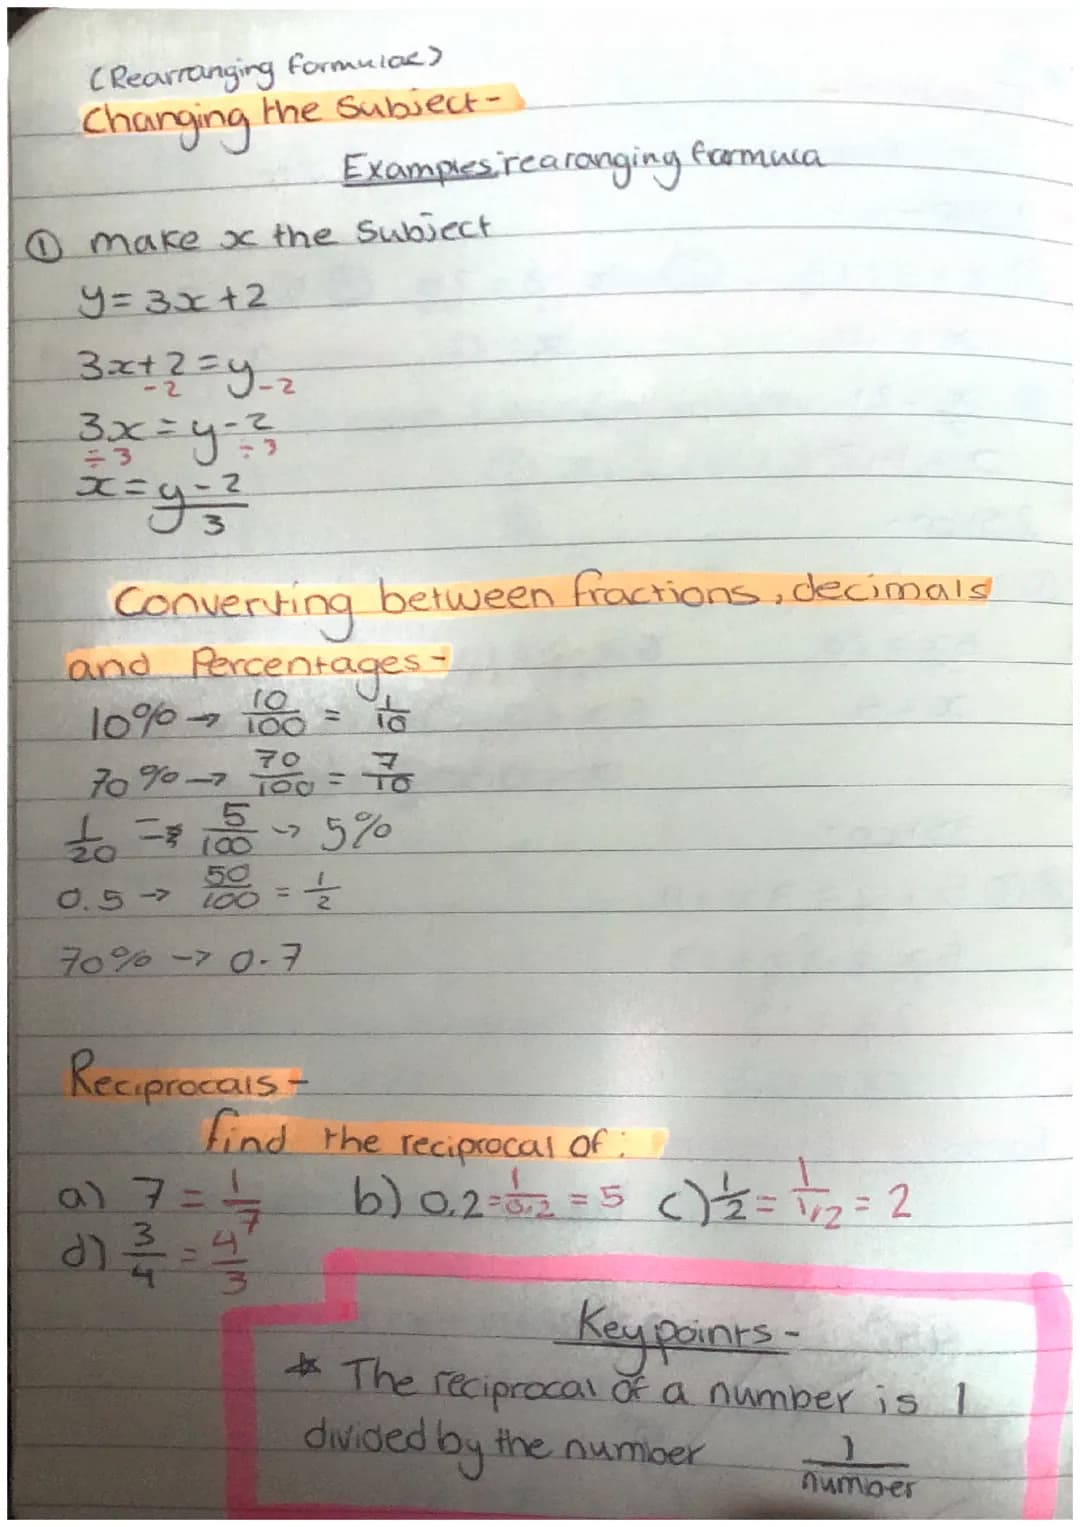 (Rearranging formulae)
Changing the Subject-
Examples: rearanging formula
① make x the Subject
y = 3x + 2
3x + 2 = y
-2 -2
3x = y - 2
÷3 ÷3
x = y - 2
3
Converting between fractions, decimals
and Percentages-
10% → 10/100 = 1/10
70% → 70/100 = 7/10
1/20 = 5/100 → 5%
0.5 → 50/100 = 1/2
70% → 0.7
Reciprocals-
find the reciprocal of:
a) 7 = 1/7 b) 0.2 = 1/0.2 = 5 c) 1/2 = 1/1/2 = 2
d) 3/4 = 4/3
Key points-
* The reciprocal of a number is 1
divided by the number 1/number